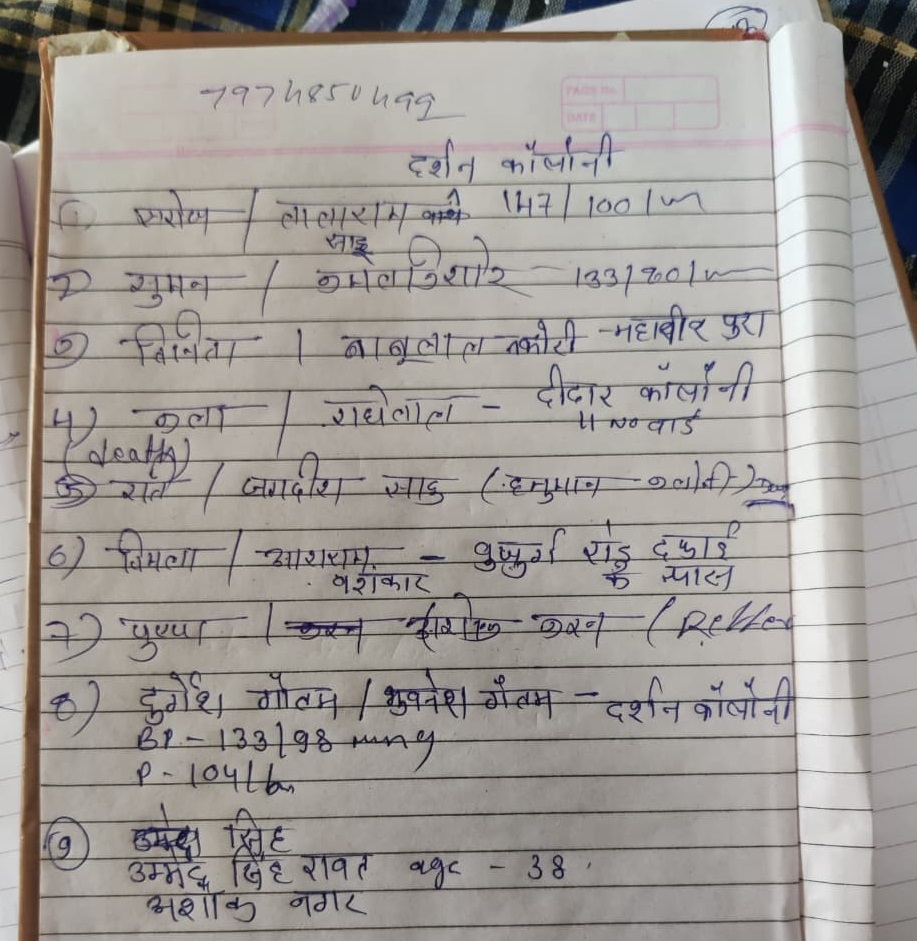 7974850499
PAGE No.
DATE
दर्शन कॉलोनी
① सरोज / लालाराम 147/100/m
साहू
2) सुमन / कमलकिशोर - 133/80/m
③ विनिता / बाबूलाल - महावीर पुरा
4) कला / राधेलाल - दीदार कॉलोनी
(death) 4 no वार्ड
⑤ / जगदीश साहु (हनुमान कलोनी)
6) विमला / आशाराम - बुजुर्ग रोड़ दफाई
वंशकार के पास
7) पुष्पा / अशोक करन (
8) दुर्गेश गौतम / भुवनेश गौतम - दर्शन कॉलोनी
BP - 133/98 mmHg
P - 104/bm
⑨ सिंह
उम्मेद सिंह रावत age - 38
अशोक नगर